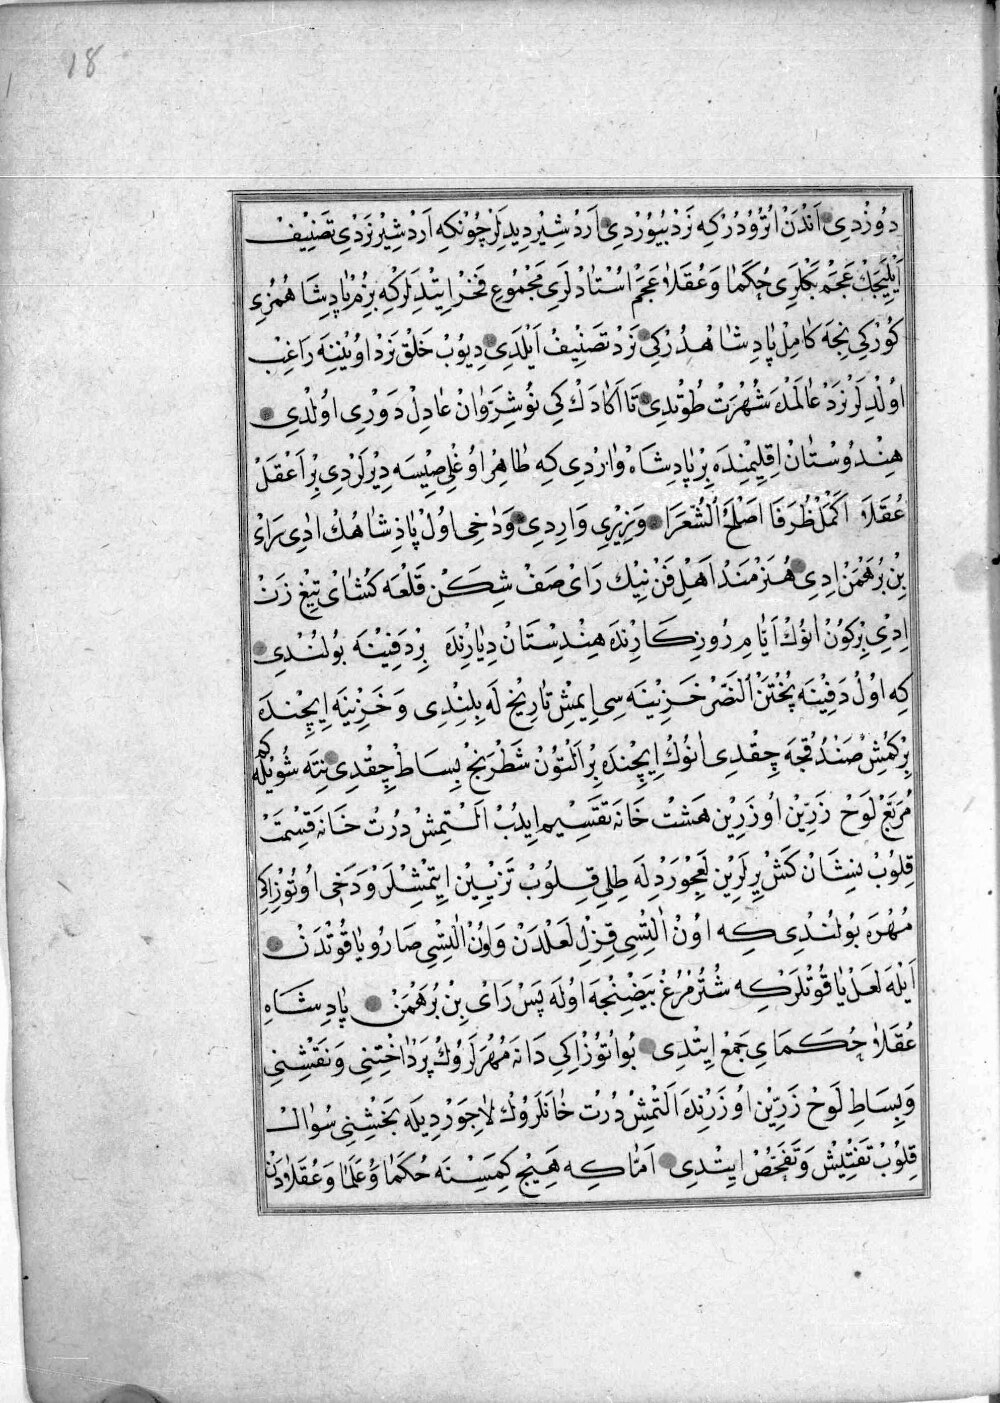 18
دُوزْدِي اَنْدَنْ اُتُرُودُرْ كِه نَرْدْ بُيُورْدِي اَرْدْشِيْر دِيدِلَرْ چُونْكِه اَرْدْشِيْر نَرْدِي تَصْنِيْفْ
اَيْلِيَجَكْ عَجَمْ بَكْلَرِي حُكَمَا وَعُقَلَاءِ عَجَمْ اُسْتَادْلَرِي مَجْمُوعِ فَخْر اِيتْدِلَرْ كِه بِزُمْ پَادِشَاهُمُزِي
كُورْكِي نِجَه كَامِلْ پَادِشَاهْدُرْ كِي نَرْدْ تَصْنِيْفْ اَيْلَدِي دِيُوبْ خَلْقْ نَرْدْ اويُنِينَه رَاغِبْ
اولْدِلَرْ نَرْدْ عَالَمْدَه شُهْرَتْ طُوتْدِي تَا اَكَادَكْ كِي نُوشِرَوَانْ عَادِلْ دَوْرِي اولْدِي
هِنْدُوسْتَانْ اِقلِيمِنْدَه بِرْ پَادِشَاه وَارْدِي كِه طَاهِرْ اوغْلِي صِيْسَه دِيْرلَرْدِي بِرْ اَعْقَلْ
عُقَلَا اَكْمَلْ ظُرَفَا اَصْلَحُ الشُّعَرَا وَزِيْرِي وَارِدِي وَدَاخِي اول پَاذِشَاهُكْ ادِي رَاءْ
بِنْ بُرْهَمَنْ اِدِي هُنَرْمَنْدْ اَهْلِ فَنْ نِيْكْ رَايْ صَفْ شِكَنْ قَلْعَه كُشَايْ تِيْغْ زَنْ
اِدِي بِرْكُونْ انُوكْ اَيَّامِ رُوزِكَارِنْدَه هِنْدِسْتَانْ دِيَارِنْدَه بِرْ دَفِيْنَه بُولُنْدِي
كِه اولْ دَفِيْنَه بُخْتَنَ النَّصْر خَزِيْنَه سِي اِيمِشْ تَارِيْخْ لَه بِلِنْدِي وَخَزِيْنَه اِيچِنْدَه
بِرْ كُمِشْ صَنْدُقْجَه چِقْدِي انُوكْ اِيچِنْدَه بِرْ اَلْتُونْ شَطْرَنْجْ بِسَاطْ چِقْدِي نِتَه شُويْلَه كِم
مُرَبَّعْ لَوْحْ زَرِّيْنْ اوزَرِيْن هَشْتْ خَانَه تَقْسِيْم اِيدُبْ اَلْتمِشْ دُرْتْ خَانَه قِسْمَتْ
قِلُوبْ نِشَانْ كَشْ يِرْلَرِيْن لَعجِوَرْدْلَه طِلِي قِلُوبْ تَزْيِيْن اِيتْمِشْلَرْ وَدَخِي اوتُوزِاكِي
مُهْرَه بُولُنْدِي كِه اونْ الْتِسِي قِزِلْ لَعْلْدَنْ وَاونْ الْتِسِي صَارُو يَاقُوتْدَنْ
اَيْلَه لَعْلْ يَاقُوتْلَرْ كِه شُتُرْمُرْغْ بَيْضِنْجَه اولَه پَسْ رَايْ بِنْ بُرْهَمَنْ پَادِشَاه
عُقَلَاءِ حُكَمَاي جَمْعْ اِيتْدِي بُو اوتُوزِاكِي دَانَه مُهْرَلَرُوكْ پَرْدَاخْتِنِي وَنَقْشِنِي
وَبِسَاطِ لَوْحْ زَرِّيْن اوزَرْنْدَه اَلْتمِشْ دُرْتْ خَانَلَرُوكْ لَاجِوَرْدِيلَه بَخْشِنِي سُوَالْ
قِلُوبْ تَفْتِيْشْ وَتَفَحُّصْ اِيتْدِي اَمَّا كِه هِيْچْ كِمْسِنَه حُكَمَا وَعُلَمَا وَعُقَلَادَنْ